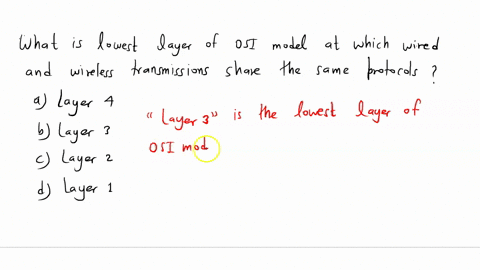 What is lowest layer of OSI model at which wired
and wireless transmissions share the same protocols ?
a) Layer 4
b) Layer 3
c) Layer 2
d) Layer 1
"Layer 3" is the lowest layer of
OSI mod